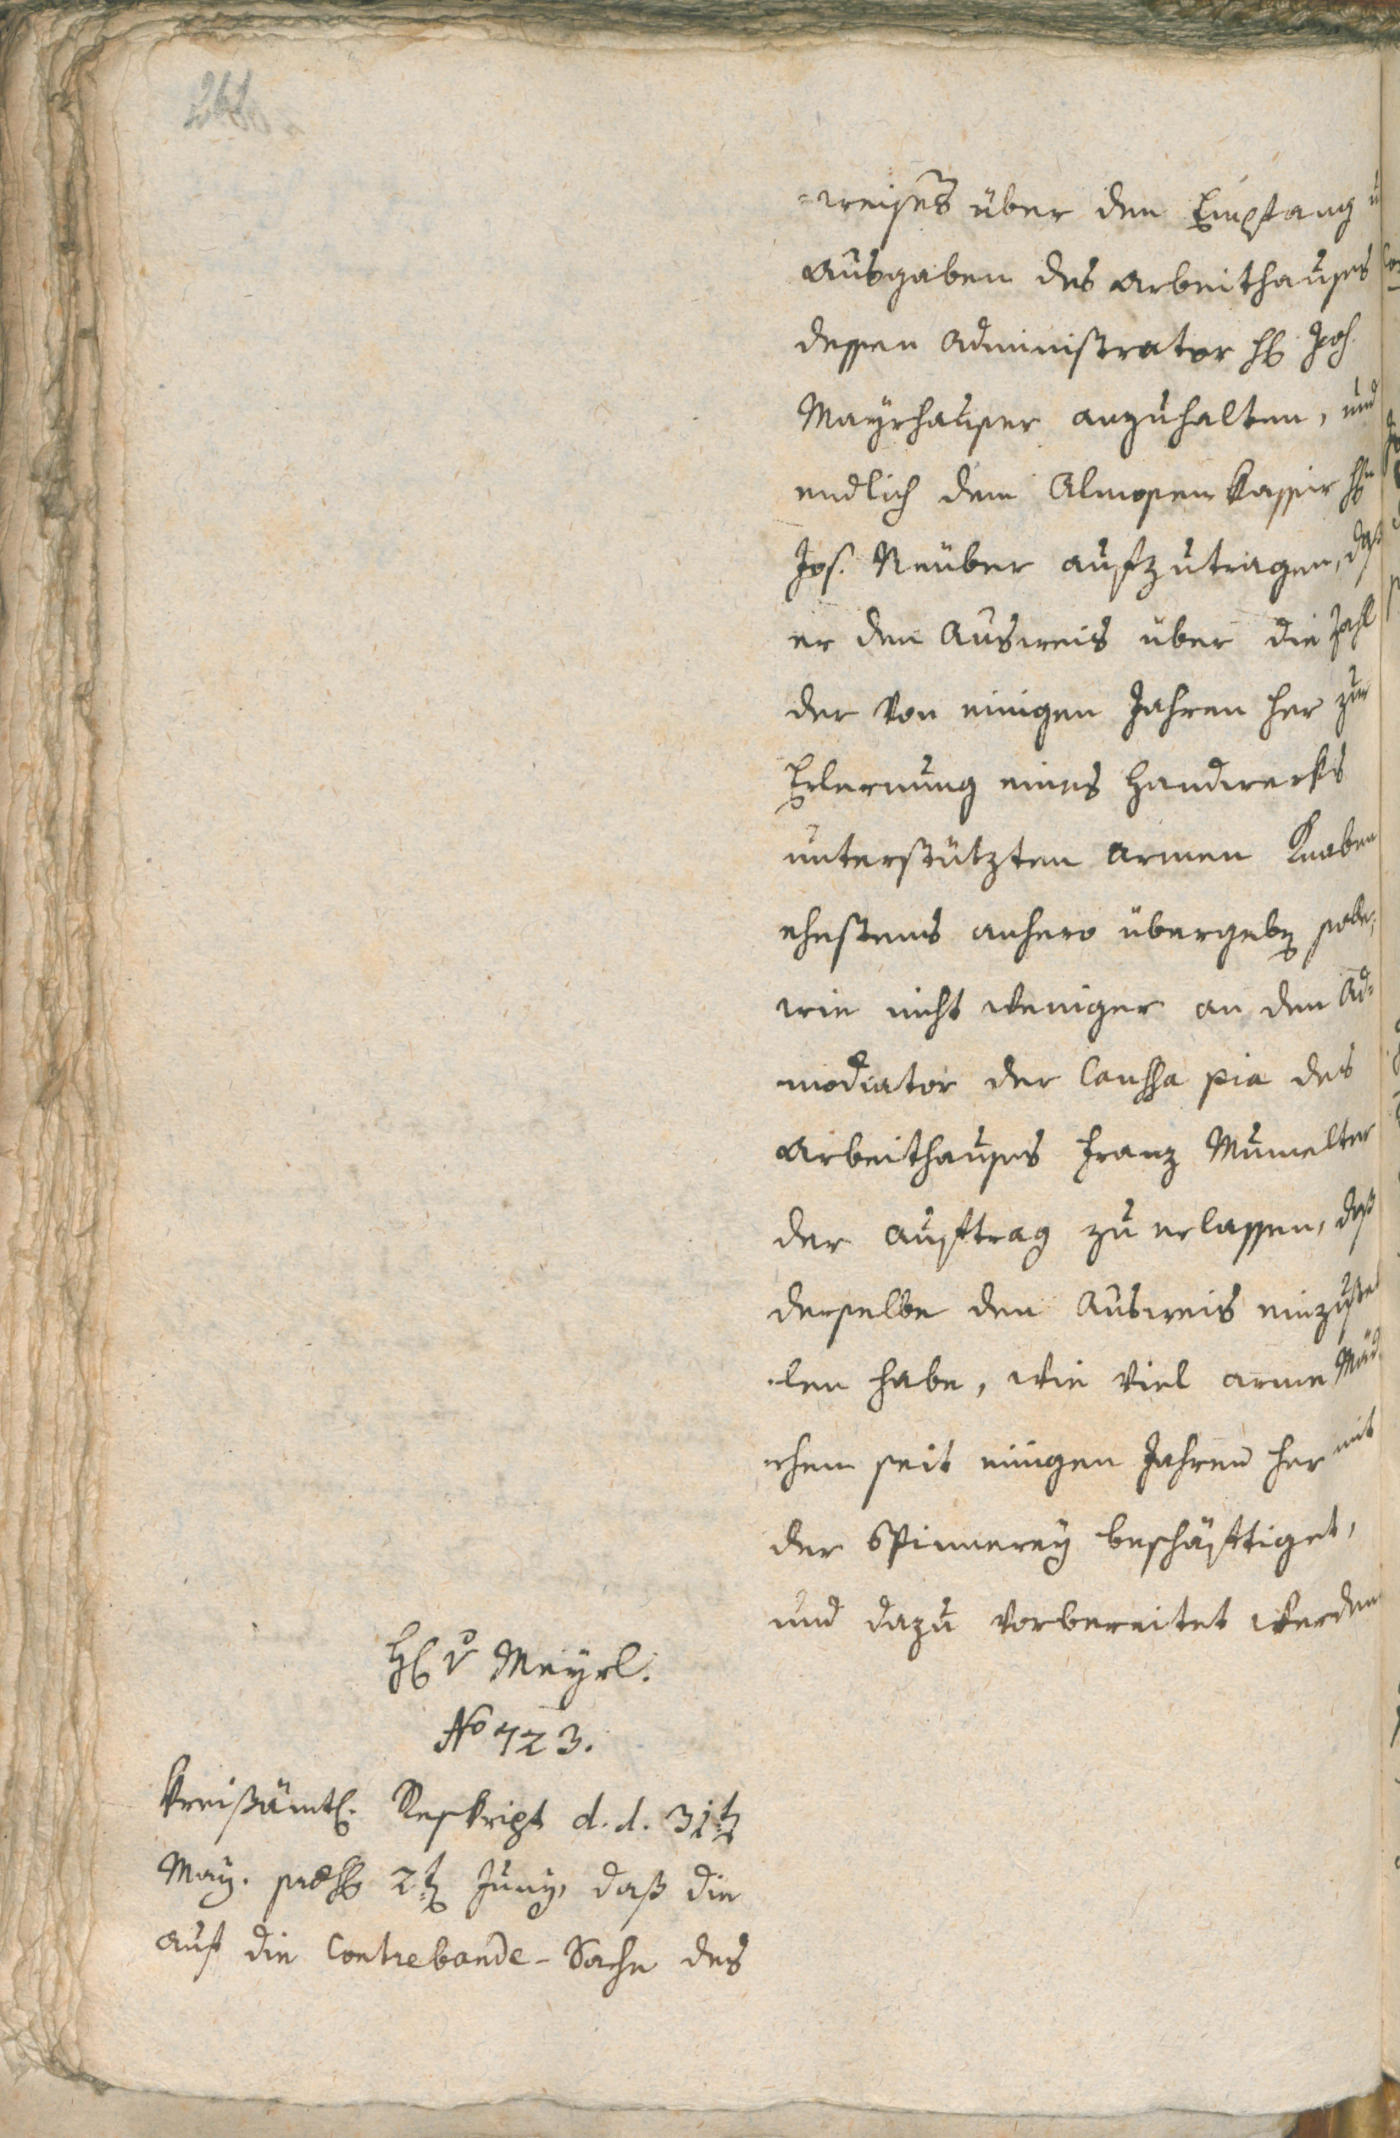 261
-weises über den Empfang u
Ausgaben des Arbeithauses
dessen Administrator H. Joh.
Mayrhauser anzuhalten, und
endlich dem Almosenkassir H
Jos. Neuber aufzutragen, daß
er den Ausweis über die Zahl
der von einigen Jahren her zur
Erlernung eines Handwerks
unterstützten armen Knaben
ehestens anhero übergeben solle;
wie nicht weniger an den Ad-
modiator der Caussa pia des
Arbeithauses Franz Mumelter
der Auftrag zu erlassen, daß
derselbe den Ausweis einzustel
-len habe, wie viel arme Mäd-
chen seit einigen Jahren her mit
der Spinnerey beschäftiget,
und dazu vorbereitet werden
H. v Meyrl.
No 723.
Kreißämtl. Reskript d. d. 31t
May. 2t Juny, daß die
auf die Contrebande-Sache des